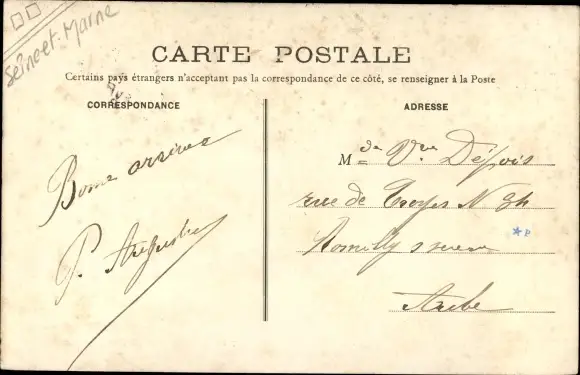 Seine et. Marne
CARTE POSTALE
Certains pays étrangers n'acceptant pas la correspondance de ce côté, se renseigner à la Poste
CORRESPONDANCE
Bonne arrivée
P.
ADRESSE
Mde Vve Dépois
rue de Troyes N
Romilly s seine
Aube